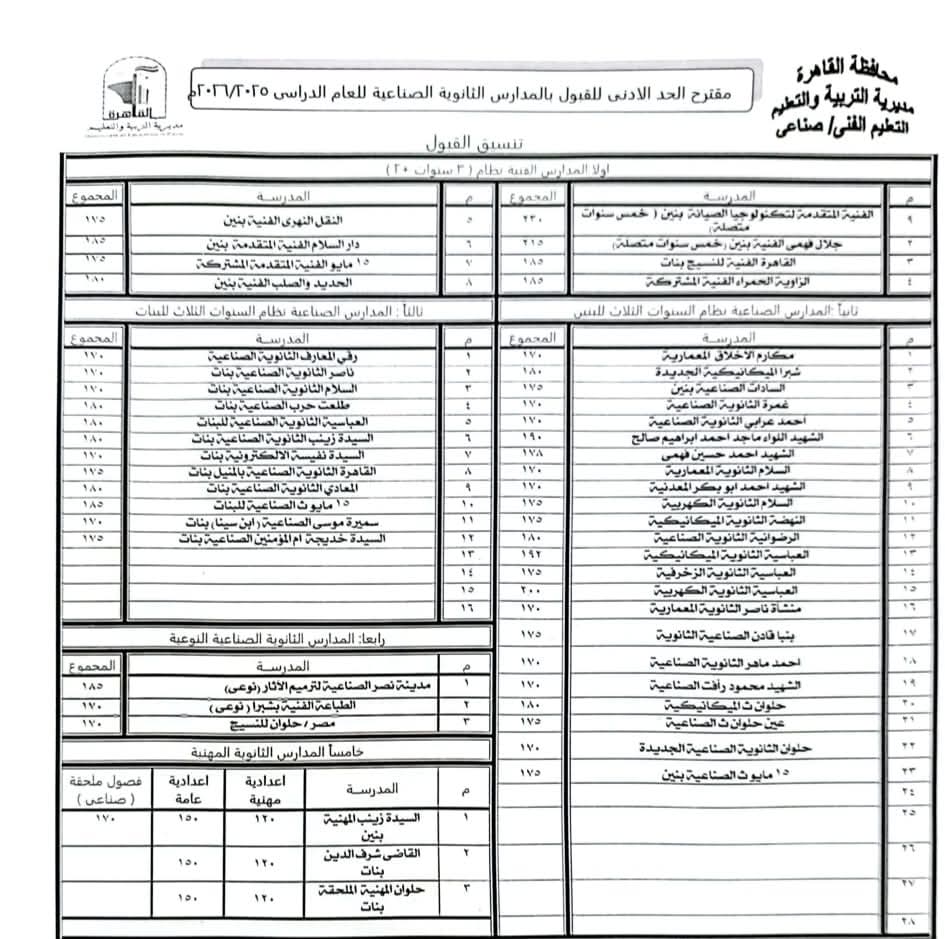 محافظة القاهرة
مديرية التربية والتعليم
التعليم الفنى/ صناعى
القاهرة
مديرية التربية والتعليم
مقترح الحد الادنى للقبول بالمدارس الثانوية الصناعية للعام الدراسى ٢٠٢٦/٢٠٢٥م
تنسيق القبول
اولا المدارس الفنية بنظام ( ٣ سنوات +٢ )
م المدرسة المجموع
٩ الفنية المتقدمة لتكنولوجيا الصيانة بنين ( خمس سنوات متصلة) ٢٣٠
٢ جلال فهمى الفنية بنين (خمس سنوات متصلة) ٢١٥
٣ القاهرة الفنية للنسيج بنات ١٨٥
٤ الزاوية الحمراء الفنية المشتركة ١٨٥
م المدرسة المجموع
٥ النقل النهرى الفنية بنين ١٧٥
٦ دار السلام الفنية المتقدمة بنين ١٨٥
٧ ١٥ مايو الفنية المتقدمة المشتركة ١٧٥
٨ الحديد والصلب الفنية بنين ١٨٠
ثانياً :المدارس الصناعية نظام السنوات الثلاث للبنين
م المدرسة المجموع
١ مكارم الأخلاق المعمارية ١٧٠
٢ شبرا الميكانيكية الجديدة ١٨٠
٣ السادات الصناعية بنين ١٧٥
٤ غمرة الثانوية الصناعية ١٧٠
٥ أحمد عرابي الثانوية الصناعية ١٧٠
٦ الشهيد اللواء ماجد احمد ابراهيم صالح ١٩٠
٧ الشهيد احمد حسين فهمى ١٧٨
٨ السلام الثانوية المعمارية ١٧٠
٩ الشهيد احمد ابو بكر المعدنية ١٧٠
١٠ السلام الثانوية الكهربية ١٧٥
١١ النهضة الثانوية الميكانيكية ١٧٥
١٢ الرضوانية الثانوية الصناعية ١٨٠
١٣ العباسية الثانوية الميكانيكية ١٩٢
١٤ العباسية الثانوية الزخرفية ١٧٥
١٥ العباسية الثانوية الكهربية ٢٠٠
١٦ منشاة ناصر الثانوية المعمارية ١٧٠
١٧ بنبا قادن الصناعية الثانوية ١٧٥
١٨ احمد ماهر الثانوية الصناعية ١٧٠
١٩ الشهيد محمود رأفت الصناعية ١٧٠
٢٠ حلوان ث الميكانيكية ١٨٠
٢١ عين حلوان ث الصناعية ١٧٥
٢٢ حلوان الثانوية الصناعية الجديدة ١٧٠
٢٣ ١٥ مايو ث الصناعية بنين ١٧٥
٢٤
٢٥
٢٦
٢٧
٢٨
ثالثاً : المدارس الصناعية نظام السنوات الثلاث للبنات
م المدرسة المجموع
١ رقي المعارف الثانوية الصناعية ١٧٠
٢ ناصر الثانوية الصناعية بنات ١٧٠
٣ السلام الثانوية الصناعية بنات ١٧٠
٤ طلعت حرب الصناعية بنات ١٨٠
٥ العباسية الثانوية الصناعية للبنات ١٨٠
٦ السيدة زينب الثانوية الصناعية بنات ١٨٠
٧ السيدة نفيسة الالكترونية بنات ١٧٠
٨ القاهرة الثانوية الصناعية بالمنيل بنات ١٧٥
٩ المعادي الثانوية الصناعية بنات ١٨٠
١٠ ١٥ مايو ث الصناعية للبنات ١٨٥
١١ سميرة موسى الصناعية (ابن سينا) بنات ١٧٠
١٢ السيدة خديجة ام المؤمنين الصناعية بنات ١٧٥
١٣
١٤
١٥
١٦
رابعا: المدارس الثانوية الصناعية النوعية
م المدرسة المجموع
١ مدينة نصر الصناعية لترميم الاثار (نوعى) ١٨٥
٢ الطباعة الفنية بشبرا (نوعى) ١٧٠
٣ مصر/ حلوان للنسيج ١٧٠
خامساً المدارس الثانوية المهنية
م المدرسة اعدادية مهنية اعدادية عامة فصول ملحقة ( صناعى )
١ السيدة زينب المهنية بنين ١٢٠ ١٥٠ ١٧٠
٢ القاضى شرف الدين بنات ١٢٠ ١٥٠
٣ حلوان المهنية الملحقة بنات ١٢٠ ١٥٠